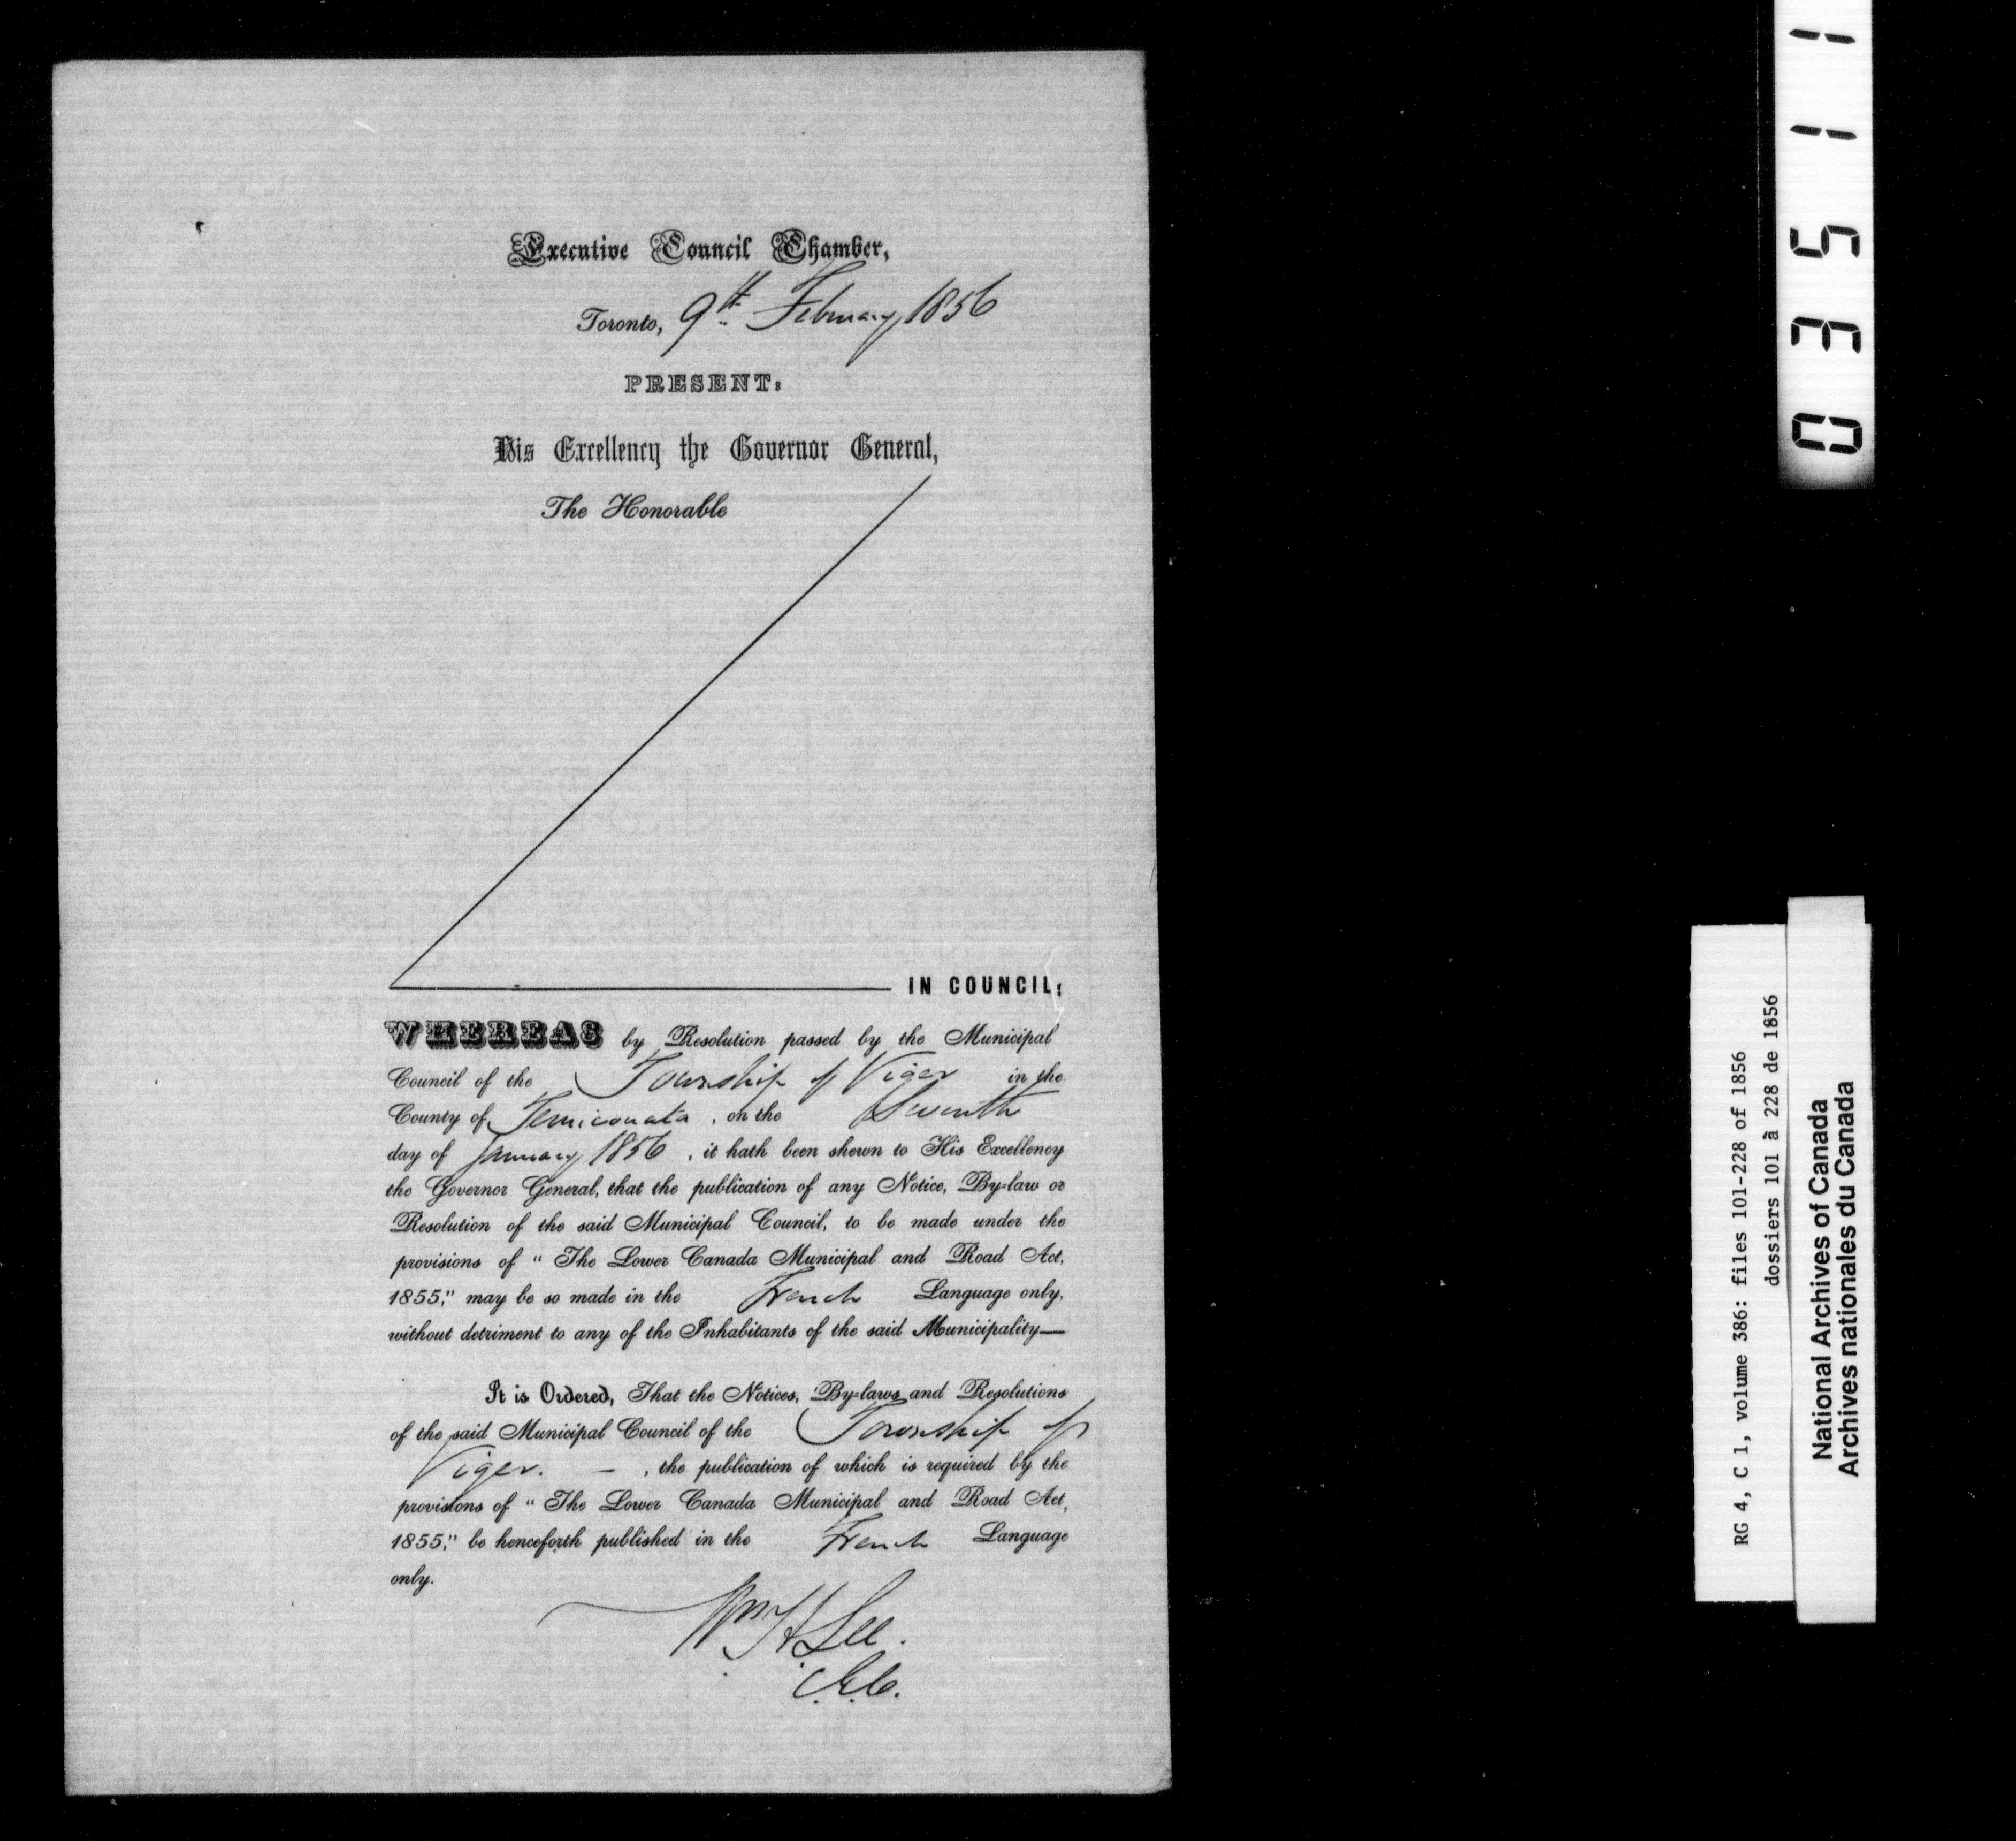 Executive Council Chamber,
Toronto, 9th February 1856
PRESENT:
His Excellency the Governor General,
The Honorable
IN COUNCIL:
WHEREAS by Resolution passed by the Municipal
Council of the Township of Viger in the
County of Temiscouata, on the Seventh
day of January 1856, it hath been shewn to His Excellency
the Governor General, that the publication of any Notice, By-law or
Resolution of the said Municipal Council, to be made under the
provisions of "The Lower Canada Municipal and Road Act,
1855;" may be so made in the French Language only,
without detriment to any of the Inhabitants of the said Municipality—
It is Ordered, That the Notices, By-laws and Resolutions
of the said Municipal Council of the Township of
Viger. — , the publication of which is required by the
provisions of "The Lower Canada Municipal and Road Act,
1855;" be henceforth published in the French Language
only.
Wm. H. Lee.
C.E.C.
03511
RG 4, C 1, volume 386: files 101-228 of 1856
dossiers 101 à 228 de 1856
National Archives of Canada
Archives nationales du Canada